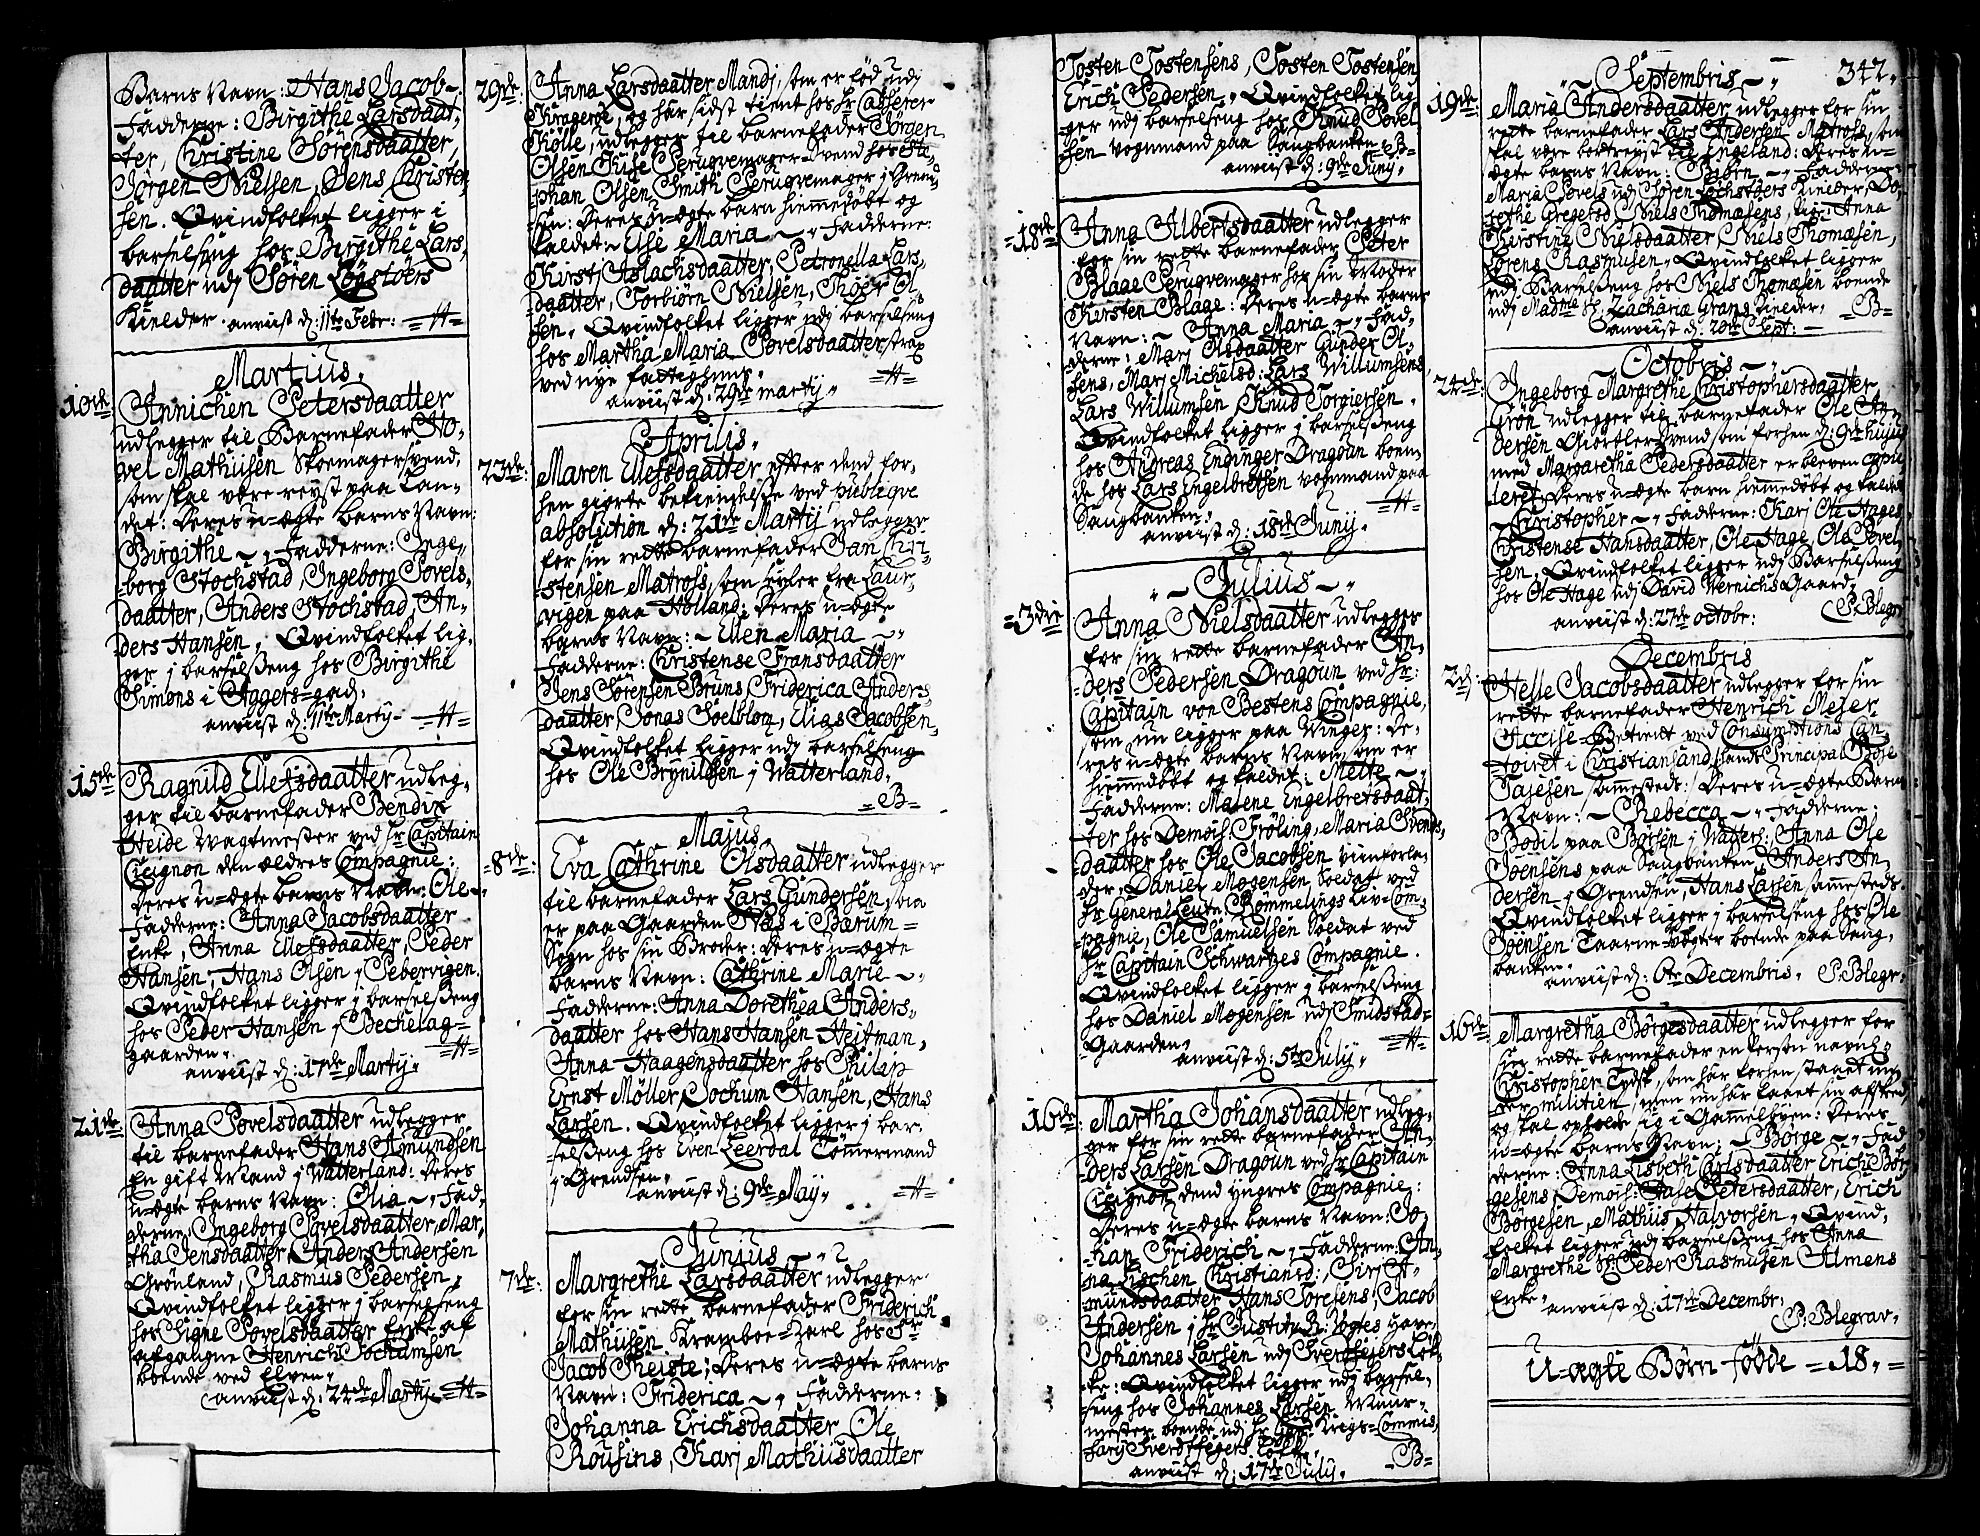 Barns Navn: Hans Jacob-
Fadderne: Birgithe Larsdaat,
ter, Christine Sörensdaatter,
Jörgen Nielsen, Jens Christen
sen. Qvindfolket ligger i
barselseng hos Birgithe Lars,
daatter udj Sören Lögstöers
Kielder. anviist d: 11te Febr: =H=
Martius.
10de Annichen Petersdaatter
udlegger til Barnefader Po,
vel Mathiisen Skoemagersvend,
som skal være reyst paa Lan,
det: Deres u=ægte barns Navn:
Birgithe ~, Fadderne: Inge,
borg Stochstad, Ingeborg Povels,
daatter, Anders Stochstad, An,
ders Hansen, Qvindfolket lig,
ger j barselseng hos Birgithe
Simons i Aggers=gad.
anviist d: 11te Martij =H=
15de Ragnild Ellefsdaatter udleg,
ger til barnefader Bendix
Heide Wagtmester ved Hr Capitain
Cicignon den ældres Compagnie:
Deres u=ægte barns Navn: Ole-
Fadderne: Anna Jacobsdaatter
Enke, Anna Ellefsdaatter, Peder
Hansen, Hans Olsen j Pebervigen.
Qvindfolket ligger j barselseng
hos Peder Hansen j Bechelag=
gaarden. =H=
anviist d: 17de Martij.
21de Anna Povelsdaatter udlegger
til barnefader Hans Amundsen
En gift Mand j Watterland: Deres
u=ægte barns Navn: Olia ~, Fad,
derne: Ingeborg Povelsdaatter, Mar,
tha Jensdaatter, Anders Andersen
Grönland, Rasmus Pedersen,
Qvindfolket ligger j barselseng
hos Signe Povelsdaatter Enke af
afgangne Henrich Jochumsen
boende ved Elven.
anviist d: 24de Martij =H=
29de Anna Larsdaatter Mandj, som er föd udj
Krageröe, og har sidst tient hos Hr Casserer
Kiölle, udlegger til barnefader Jörgen
Olsen Huse Peruqvemager=Svend hos Ste,
phan Olsen Smith Peruqvemager j Grend,
sen: Deres u=ægte barn hiemmedöbt og
kaldet ~ Else Maria ~, Fadderne:
Kirstj Aslachsdaatter, Petronella Lars,
daatter, Torbiörn Nielsen, Thoer Ol,
sen. Qvindfolket ligger udj barselseng
hos Martha Maria Povelsdaatter strax
ved nye fattighuus. =H=
anviist d: 29de martij.
Aprilis.
23de Maren Ellefsdaatter effter dend for,
hen giorte bekiendelse ved publiqve
absolution d: 21de Martij, udlegger
for sin rette barnefader Jan Chri,
stensen Matross, som Seyler fra Laur,
vigen paa Holland: Deres u=ægte
barns Navn: ~ Ellen Maria ~,
Fadderne: Christense Fransdaatter
Jens Sörensen Bruns, Friderica Anders,
daatter, Jonas Soelblom, Elias Jacobsen,
Qvindfolket ligger udj barselseng
hos Ole Brynilsen j Watterland.
=B=
Majus.
8de: Eva Cathrine Olsdaatter udlegger
til barnefader Lars Gundersen, som
er paa Gaarden Næs i Bærum=
Sogn hos sin Broder: Deres u=ægte
barns Navn: Cathrine Marie ~.
Fadderne: Anna Dorethea Anders,
daatter hos Hans Hansen Heitman,
Anna Haagensdaatter hos Philip
Ernst Möller, Jochum Hansen, Hans
Larsen. Qvindfolket ligger j bar,
selseng hos Even Leerdal Tömmermand
j Grendsen.
anviist d: 9de Maij. =H=
Junius
7de: Margrethe Larsdaatter udlegger
for sin rette barnefader Friderich
Mathiisen Kramboe=Karl hos Sr
Jacob Theiste; Deres u=ægte barns
Navn: Friderica ~, Fadderne:
Johanna Erichsdaatter, Ole
Rousins, Karj Mathiisdaatter
Tosten Tostensens, Tosten Tostensen
Erich Pedersen, Qvindfolket lig
ger udj barselseng hos Knud Povel
sen vognmand paa Saugbanken =B=
anviist d: 9de Junij.
=18de Anna Albertsdaatter udlegger
for sin rette barnefader Peter
Blage Peruqvemager hos sin Moder
Kersten Blage: Deres u=ægte barns
Navn: ~ Anna Maria ~, Fad,
derne: Marj Olsdaatter Gunder Ol,
sens, Marj Michelsd: Lars Willumsens,
Lars Willumsen, Knud Torgiersen.
Qvindfolket ligger j barselseng
hos Andreas Endinger Dragoun boen,
de hos Lars Engelbretsen vognmand paa
Saugbanken. =H=
anviist d: 18de Junij.
~ Julius ~
=3die Anna Nielsdaatter udlegger
for sin rette barnefader An,
ders Pedersen Dragoun ved Hr:
Capitain von Bestens Compagnie,
som nu ligger paa Winger: De,
res u=ægte barns Navn, som er
hiemmedöbt og kaldet: Mette ~,
Fadderne: Malene Engelbretsdaat,
ter hos Demois: Fröling, Maria Svends,
daatter hos Ole Jacobsen Viinforla,
der, Daniel Mogensen Soldat ved
Hr General Leutn: Römmelings Liv=Com,
pagnie, Ole Samuelsen Soldat ved
Hr Capitain Schwartzes Compagnie.
Qvindfolket ligger j barselseng
hos Daniel Mogensen udj Smidstad=
Gaarden. =H=
anviist d: 5te Julij.
16de Martha Johansdaatter udleg,
ger for sin rette barnefader An,
ders Larsen Dragoun ved Hr Capitain
Cicignon dend yngres Compagnie:
Deres u=ægte barns Navn: Jo,
han Friderich ~, Fadderne: An,
na Lischen Christiansd:, Sirj A,
mundsdaatter Hans Toresens, Jacob
Andersen j Hr Justits R: Vogts Have,
Johannes Larsen udj Sverdfegers Lök,
ke: Qvindfolket ligger udj barsel,
seng hos Johannes Larsen Muur,
mester boende udj Hr Gen: Krigs=Commis,
sarij Sverdfegers Lökke.
anviist d: 17de Julij. =B=
342.
~ Septembris ~
19de Maria Andersdaatter udlegger for sin
rette barnefader Lars Andersen Matross, som
skal være bortreyst til Engeland: Deres u=
ægte barns Navn: Biörn ~, Fadderne:
Maria Povels udj Sören Löchstöers Kielder, Do,
rethe Gregersd: Niels Thomæsens, Anna
Kirstine Nielsdaatter, Niels Thomæsen,
Sörens Rasmusen, Qvindfolket ligger
udj Barselseng hos Niels Thomæsen boende
udj Madme Sl: Zachariæ Grans Kielder. =B=
anviist d: 20de Sept: ~
Octobris ~
24de: Ingeborg Margrethe Christophersdaatter
Grön udlegger til barnefader Ole An,
dersen Giörtler Svend som forhen d: 9de hujus
med Margaretha Pedersdaatter er bleven copu
leret, Deres u=ægte barn hiemmedöbt og kaldet
~ Christopher ~, Fadderne: Karj Ole Hages
Christense Hansdaatter, Ole Hage, Ole Povel,
sen. Qvindfolket ligger udj Barselseng
hos Ole Hage udj David Wernichs Gaard.
anviist d: 27de octobr: P: Blegr
Decembris
2d: Helle Jacobsdaatter udlegger for sin
rette barnefader Henrich Meser
Accise=Betient ved Consumtions Con
toiret i Christiansand, hands Principal Böse
Tajesen sammesteds: Deres u=ægte Barns
Navn: ~ Rebecca ~, Fadderne:
Bodil paa Börsen j Watterl: Anna Ole
Joensens paa Saugbanken, Anders An,
dersen j Grendsen, Hans Larsen sammesteds.
Qvindfolket ligger j barselseng hos Ole
Joensen Taarne=Vegter boende paa Saug,
banken.
anviist d: 6te Decembris. P: Blegr.
16de Margretha Börgesdaatter udlegger for
sin rette barnefader en Person navnl:
Christopher Tydsk, som har forhen staaet un,
der militien, men nu har faaet sin afsked
og skal opholde sig i Gammelbyen: Deres
u=ægte barns Navn: ~ Börge ~, Fad
derne: Anna Lisbeth Carlsdaatter Erich Bör
gesens, Demois: Sale Petersdaatter, Erich
Börgesen, Mathiis Halvorsen, Qvind,
folket ligger udj barselseng hos Anna
Margrethe Sl: Peder Rasmusen Almens
Enke. anviist d: 17de Decembr:
P: Blegrav.
U=ægte Börn födde = 18. =